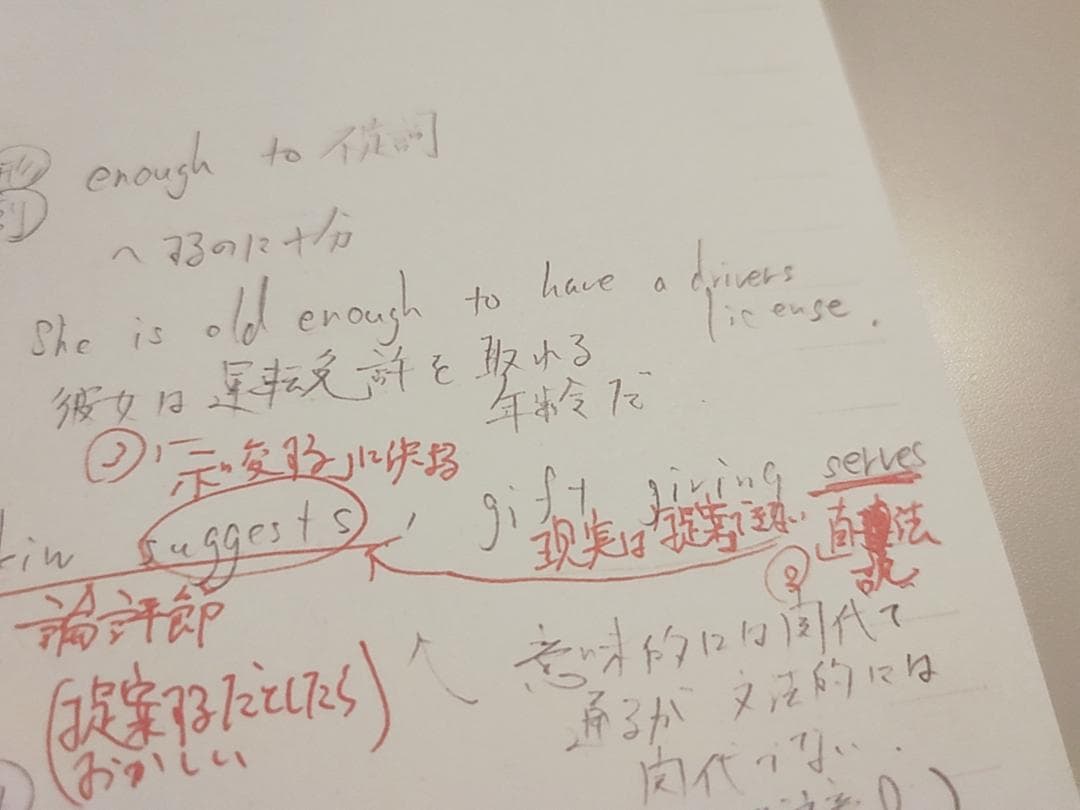 enough to 不定詞
~するのに十分
She is old enough to have a drivers license.
彼女は運転免許を取れる
年齢だ
③「示唆する」に決まる
suggests, gift giving serves
現実は提案でない
直説法
論評節
(提案するだとしたら
おかしい)
意味的には
通るが 文法的には